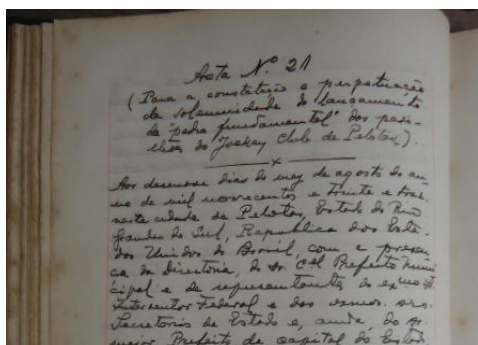 Acta N.º 21
(Para a constatação e perpetuação
da solennidade do "lançamento
da pedra fundamental" dos pavi-
lhões do Jockey Club de Pelotas).
Aos desenove dias do mez de agosto do an-
no de mil novecentos e trinta e
nesta cidade de Pelotas, Estado do Rio
Grande do Sul, Republica dos Esta-
dos Unidos do Brasil, com a presen-
ça da directoria, do Sr. Cel Prefeito Muni-
cipal e de representantes do exmo Sr.
Interventor Federal e dos exmos. srs.
Secretarios de Estado e, ainda, do Sr.
Prefeito da capital do Estado